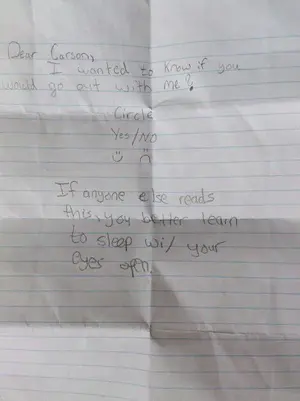 Dear Carson,
I wanted to know if you
would go out with me?
Circle
Yes/No
If anyone else reads
this, you better learn
to sleep w/ your
eyes open.